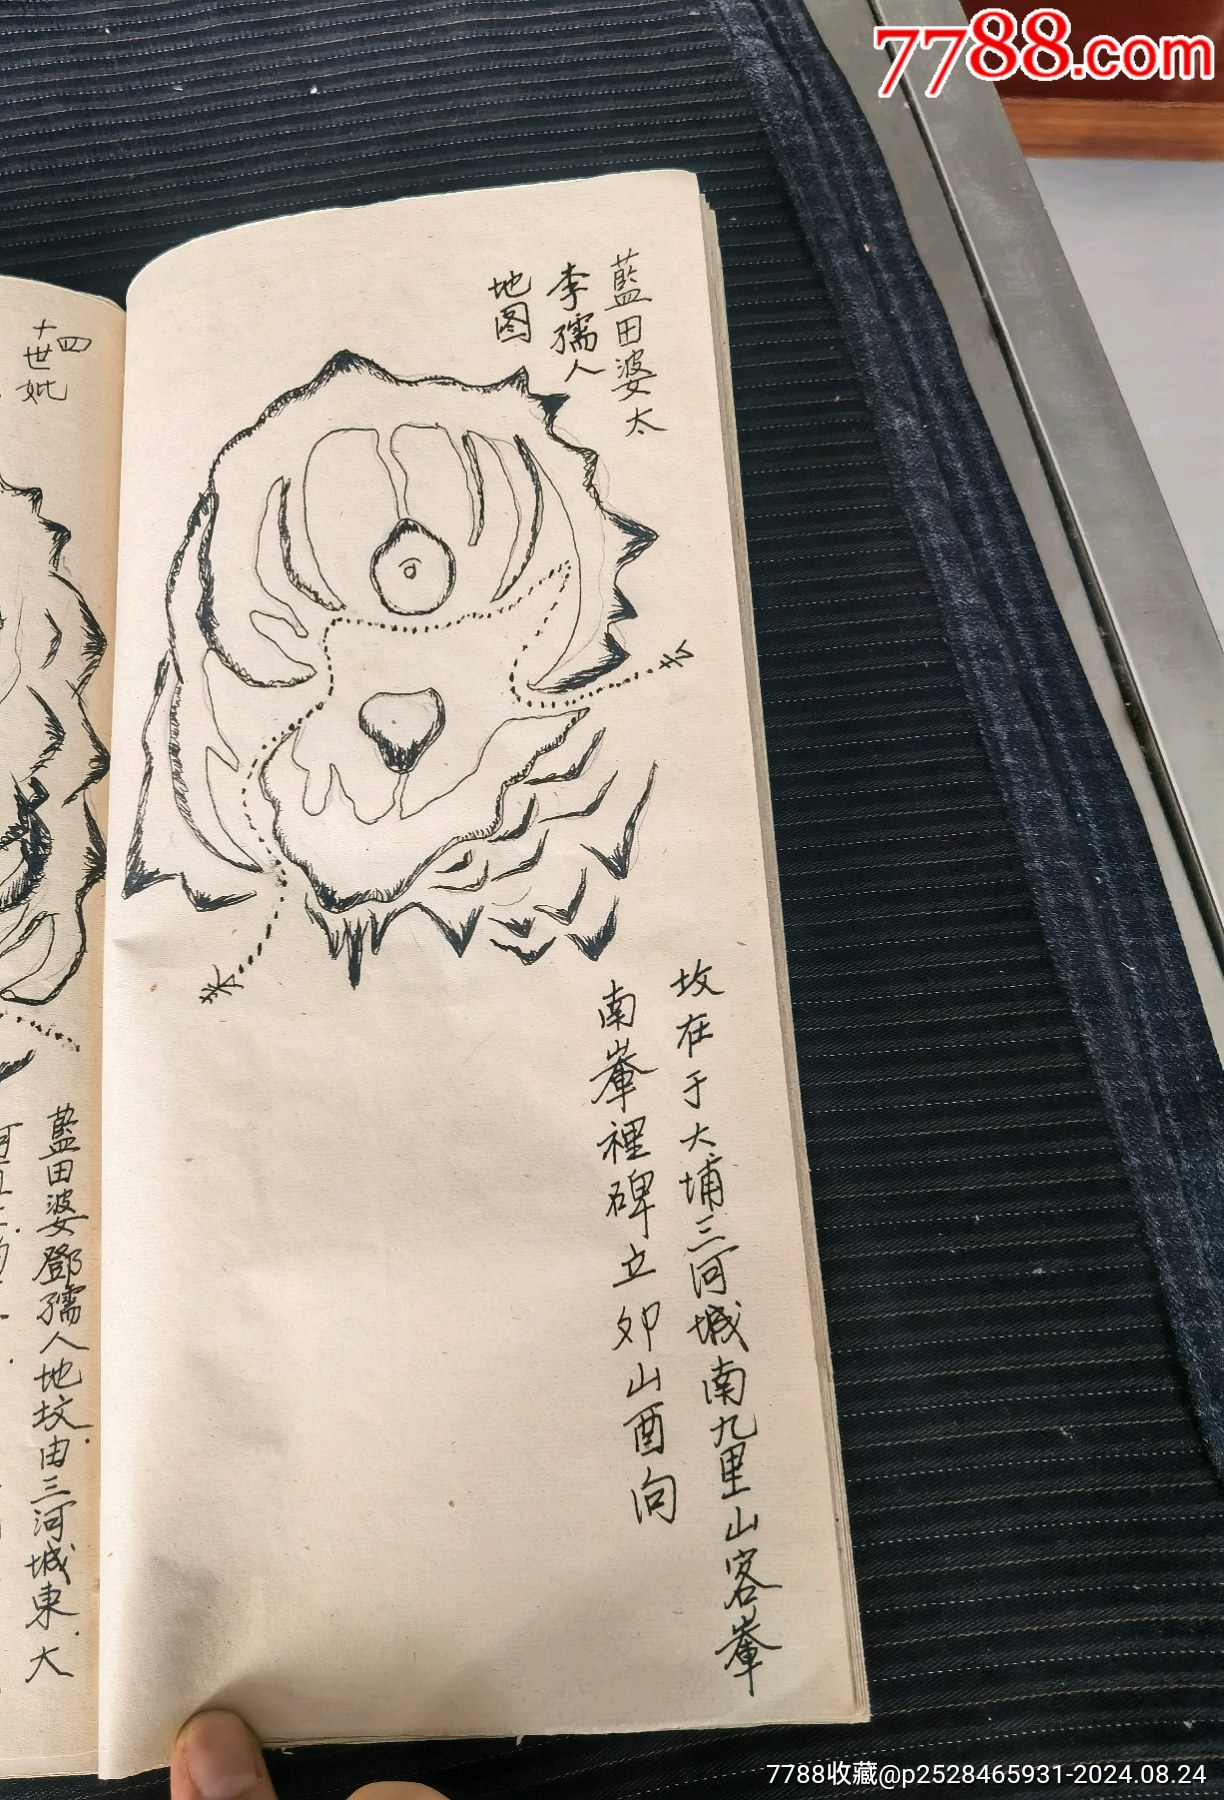 7788.com
藍田婆太
李孺人
地图
坟在于大埔三河城南九里山客輋
南輋裡碑立卯山酉向
十四
世妣
藍田婆鄧孺人地坟由三河城東大
7788收藏@p2528465931-2024.08.24